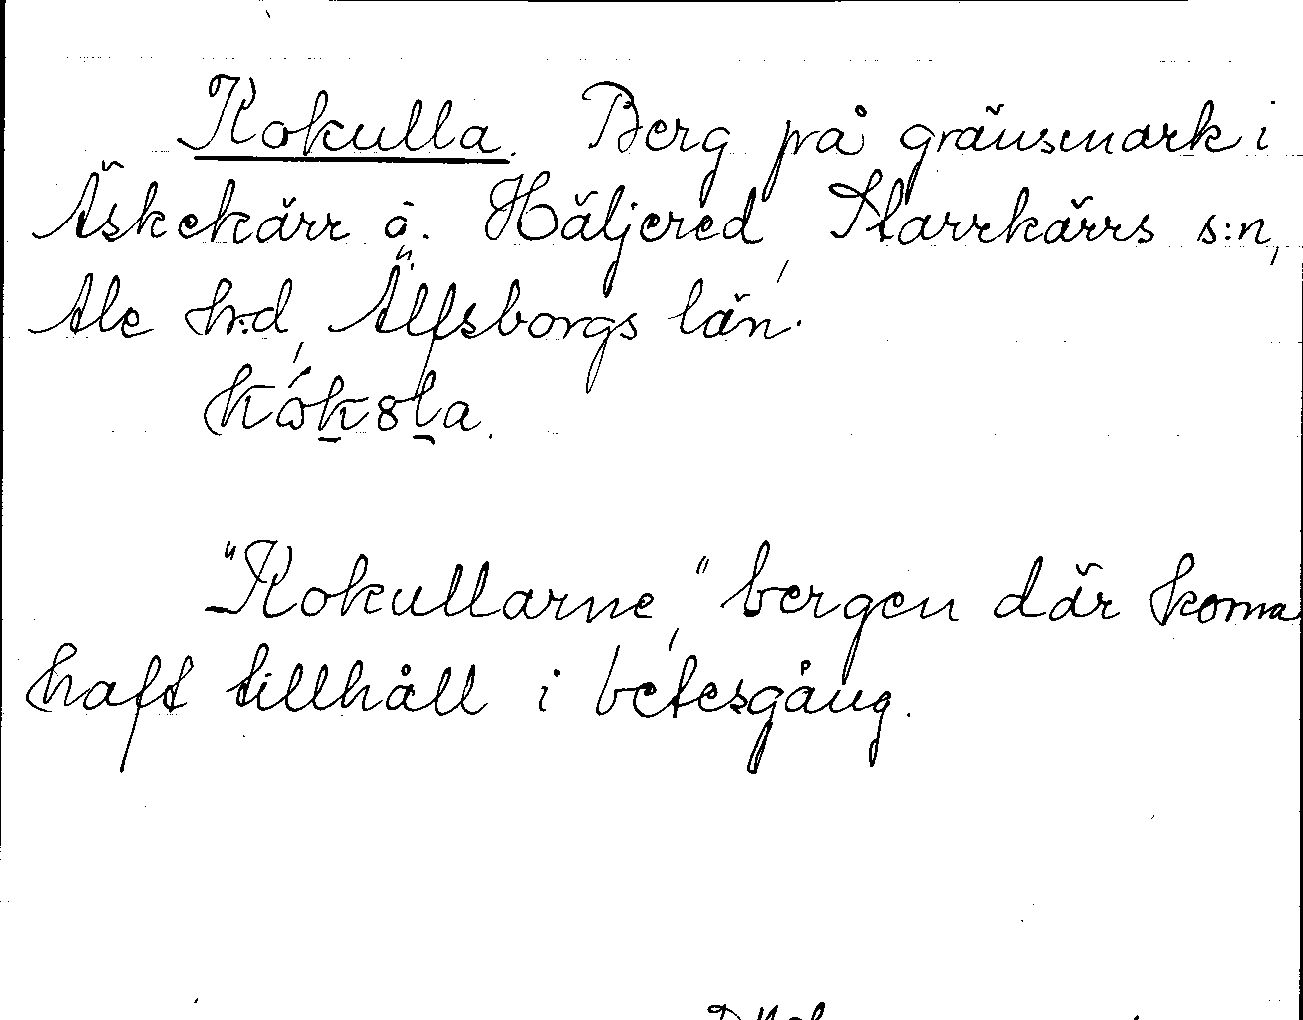 Kokulla. Berg på gränsmark i
Äskekärr å. Häljered, Starrkärrs s:n,
Ale h:d, Älfsborgs län.
kók8la.
"Kokullarne," bergen där korna
haft tillhåll i betesgång.